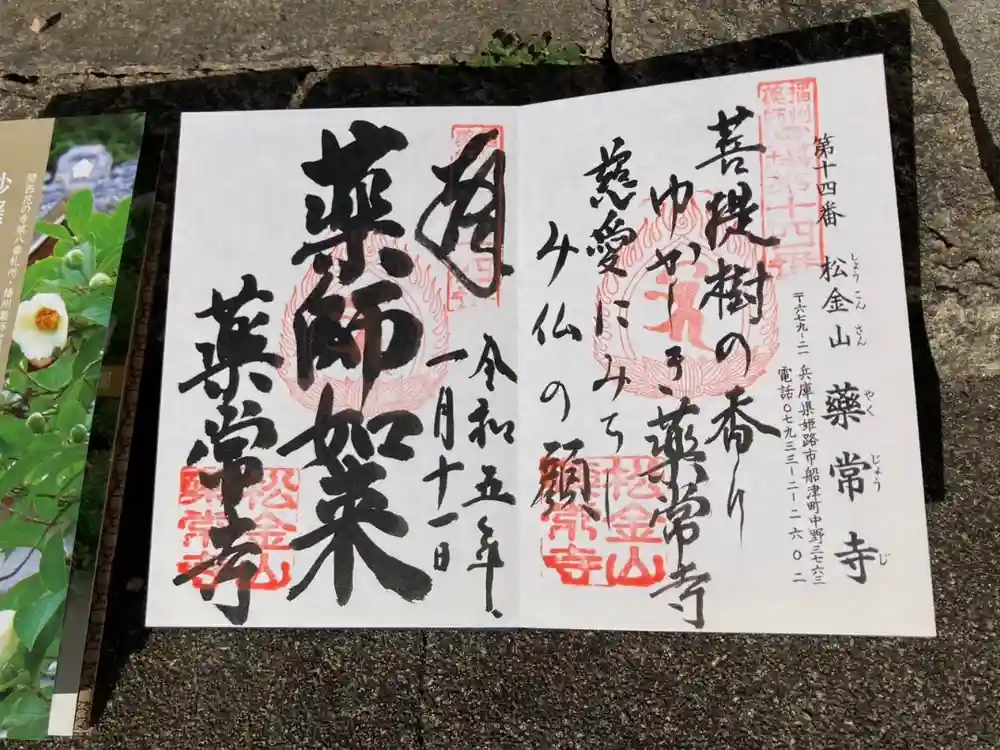 第十四番
松金山 薬常寺
しょう こん さん
やく じょう じ
〒六七九-二一 兵庫県姫路市船津町中野三七六三
電話〇七九三三-二-二六〇二
菩提樹の香り
ゆかしき薬常寺
慈愛にみちし
み仏の顔
松金山
薬常寺
拝
令和五年
一月十一日
薬師如来
薬常寺
松金山
薬常寺
関西花の寺第八番札所・播州薬師